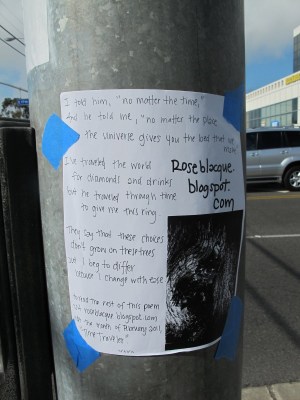 I told him, "no matter the time,"
And he told me, "no matter the place
the universe gives you the bed that we
I've traveled the world
for diamonds and drinks
but he traveled through time
to give me this ring
Roseblacque.
blogspot.
com
They say that these choices
don't grow on these trees
but I beg to differ
cause I change with ease
To read the rest of this poem
visit roseblacque.blogspot.com
in the month of February 2011,
"Time Traveler"